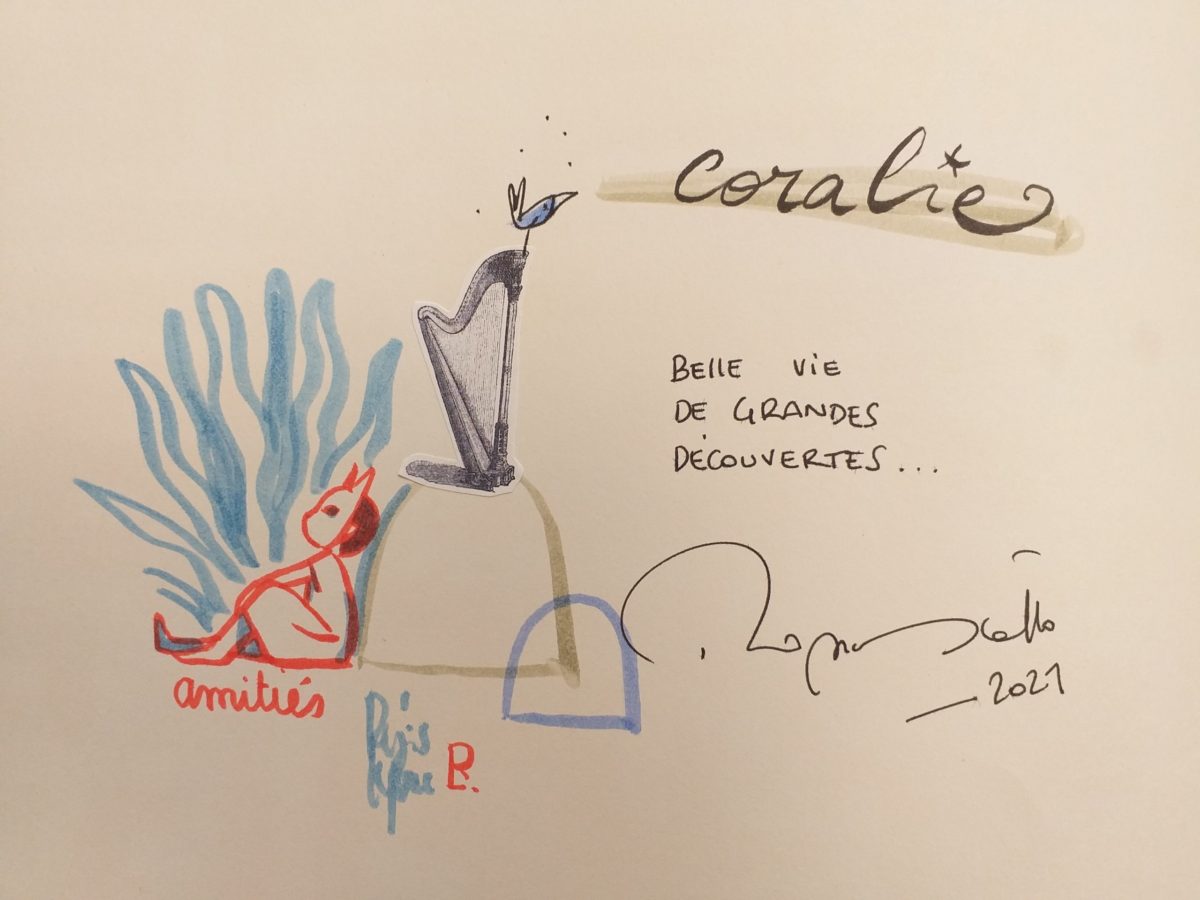 coralie
BELLE VIE
DE GRANDES
DÉCOUVERTES...
2021
amitiés
B.